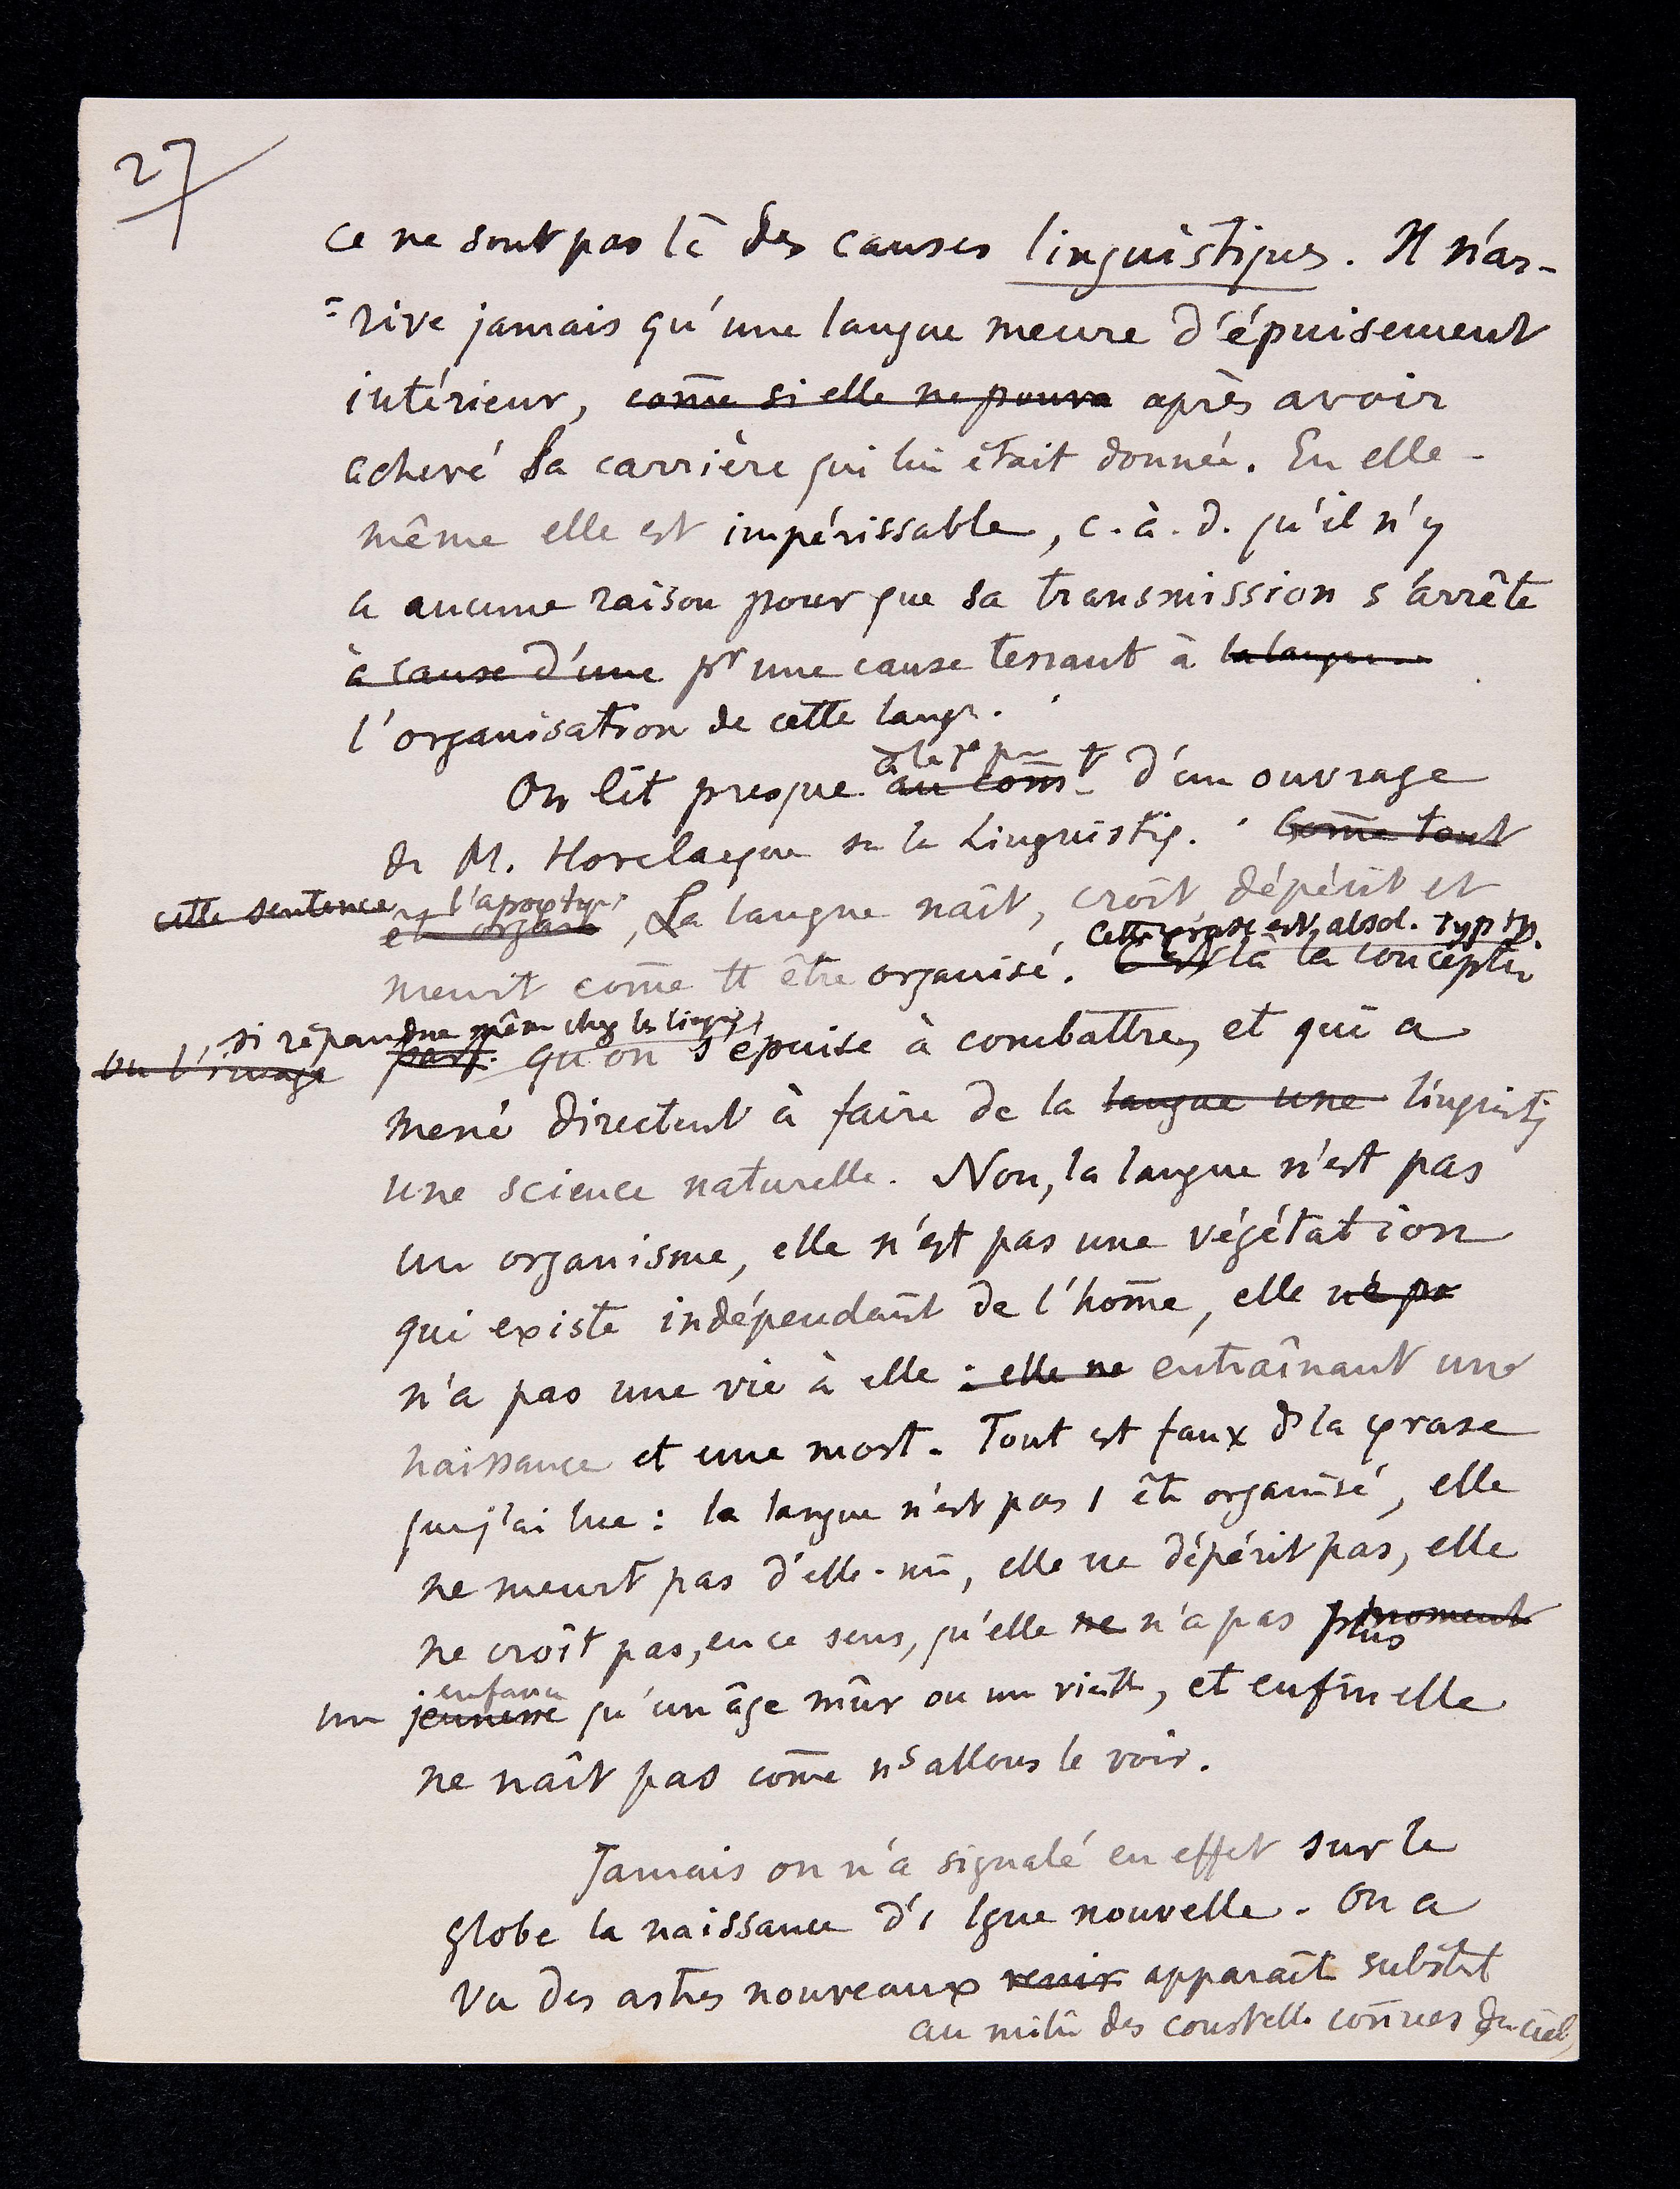 27
ce ne sont pas là des causes linguistiques. Il n'ar-
=rive jamais qu'une langue meure d'épuisement
intérieur, com̄e si elle ne pouva après avoir
achevé la carrière qui lui était donnée. En elle-
même elle est impérissable, c.à.d. qu'il n'y
a aucune raison pour que sa transmission s'arrête
à cause d'une pr une cause tenant à la langue
l'organisation de cette lang.
à la 1e p
On lit presque au com̄t d'un ouvrage
de M. Hovelacque sur la Linguistiq. Com̄e tout
cette sentence l'apophtg
êt organ , La langue naît, croît dépérit et
Cette φrase est absol. typiq.
meurt com̄e tt être organisé. C'est là la conceptio
, si répandue même chez les linguist,
ou l'image parf. qu'on s'épuise à combattre, et qui a
mené directent à faire de la langue une linguistiq
une science naturelle. Non, la langue n'est pas
un organisme, elle n'est pas une végétation
qui existe indépendant de l'hom̄e, elle ne pe
n'a pas une vie à elle : elle ne entraînant une
naissance et une mort. Tout est faux ds la φrase
que j'ai lue : la langue n'est pas 1 êt organisé, elle
ne meurt pas d'elle-mm̄, elle ne dépérit pas, elle
ne croît pas, en ce sens, qu'elle ne n'a pas plus moment
enfance
une jeunesse qu'un âge mûr ou une vieill, et enfin elle
ne naît pas com̄e ns allons le voir.
Jamais on n'a signalé en effet sur le
globe la naissance d'1 lgue nouvelle. On a
vu des astres nouveaux venir apparaît subitt
au milieu des constell. con̄ues du ciel,